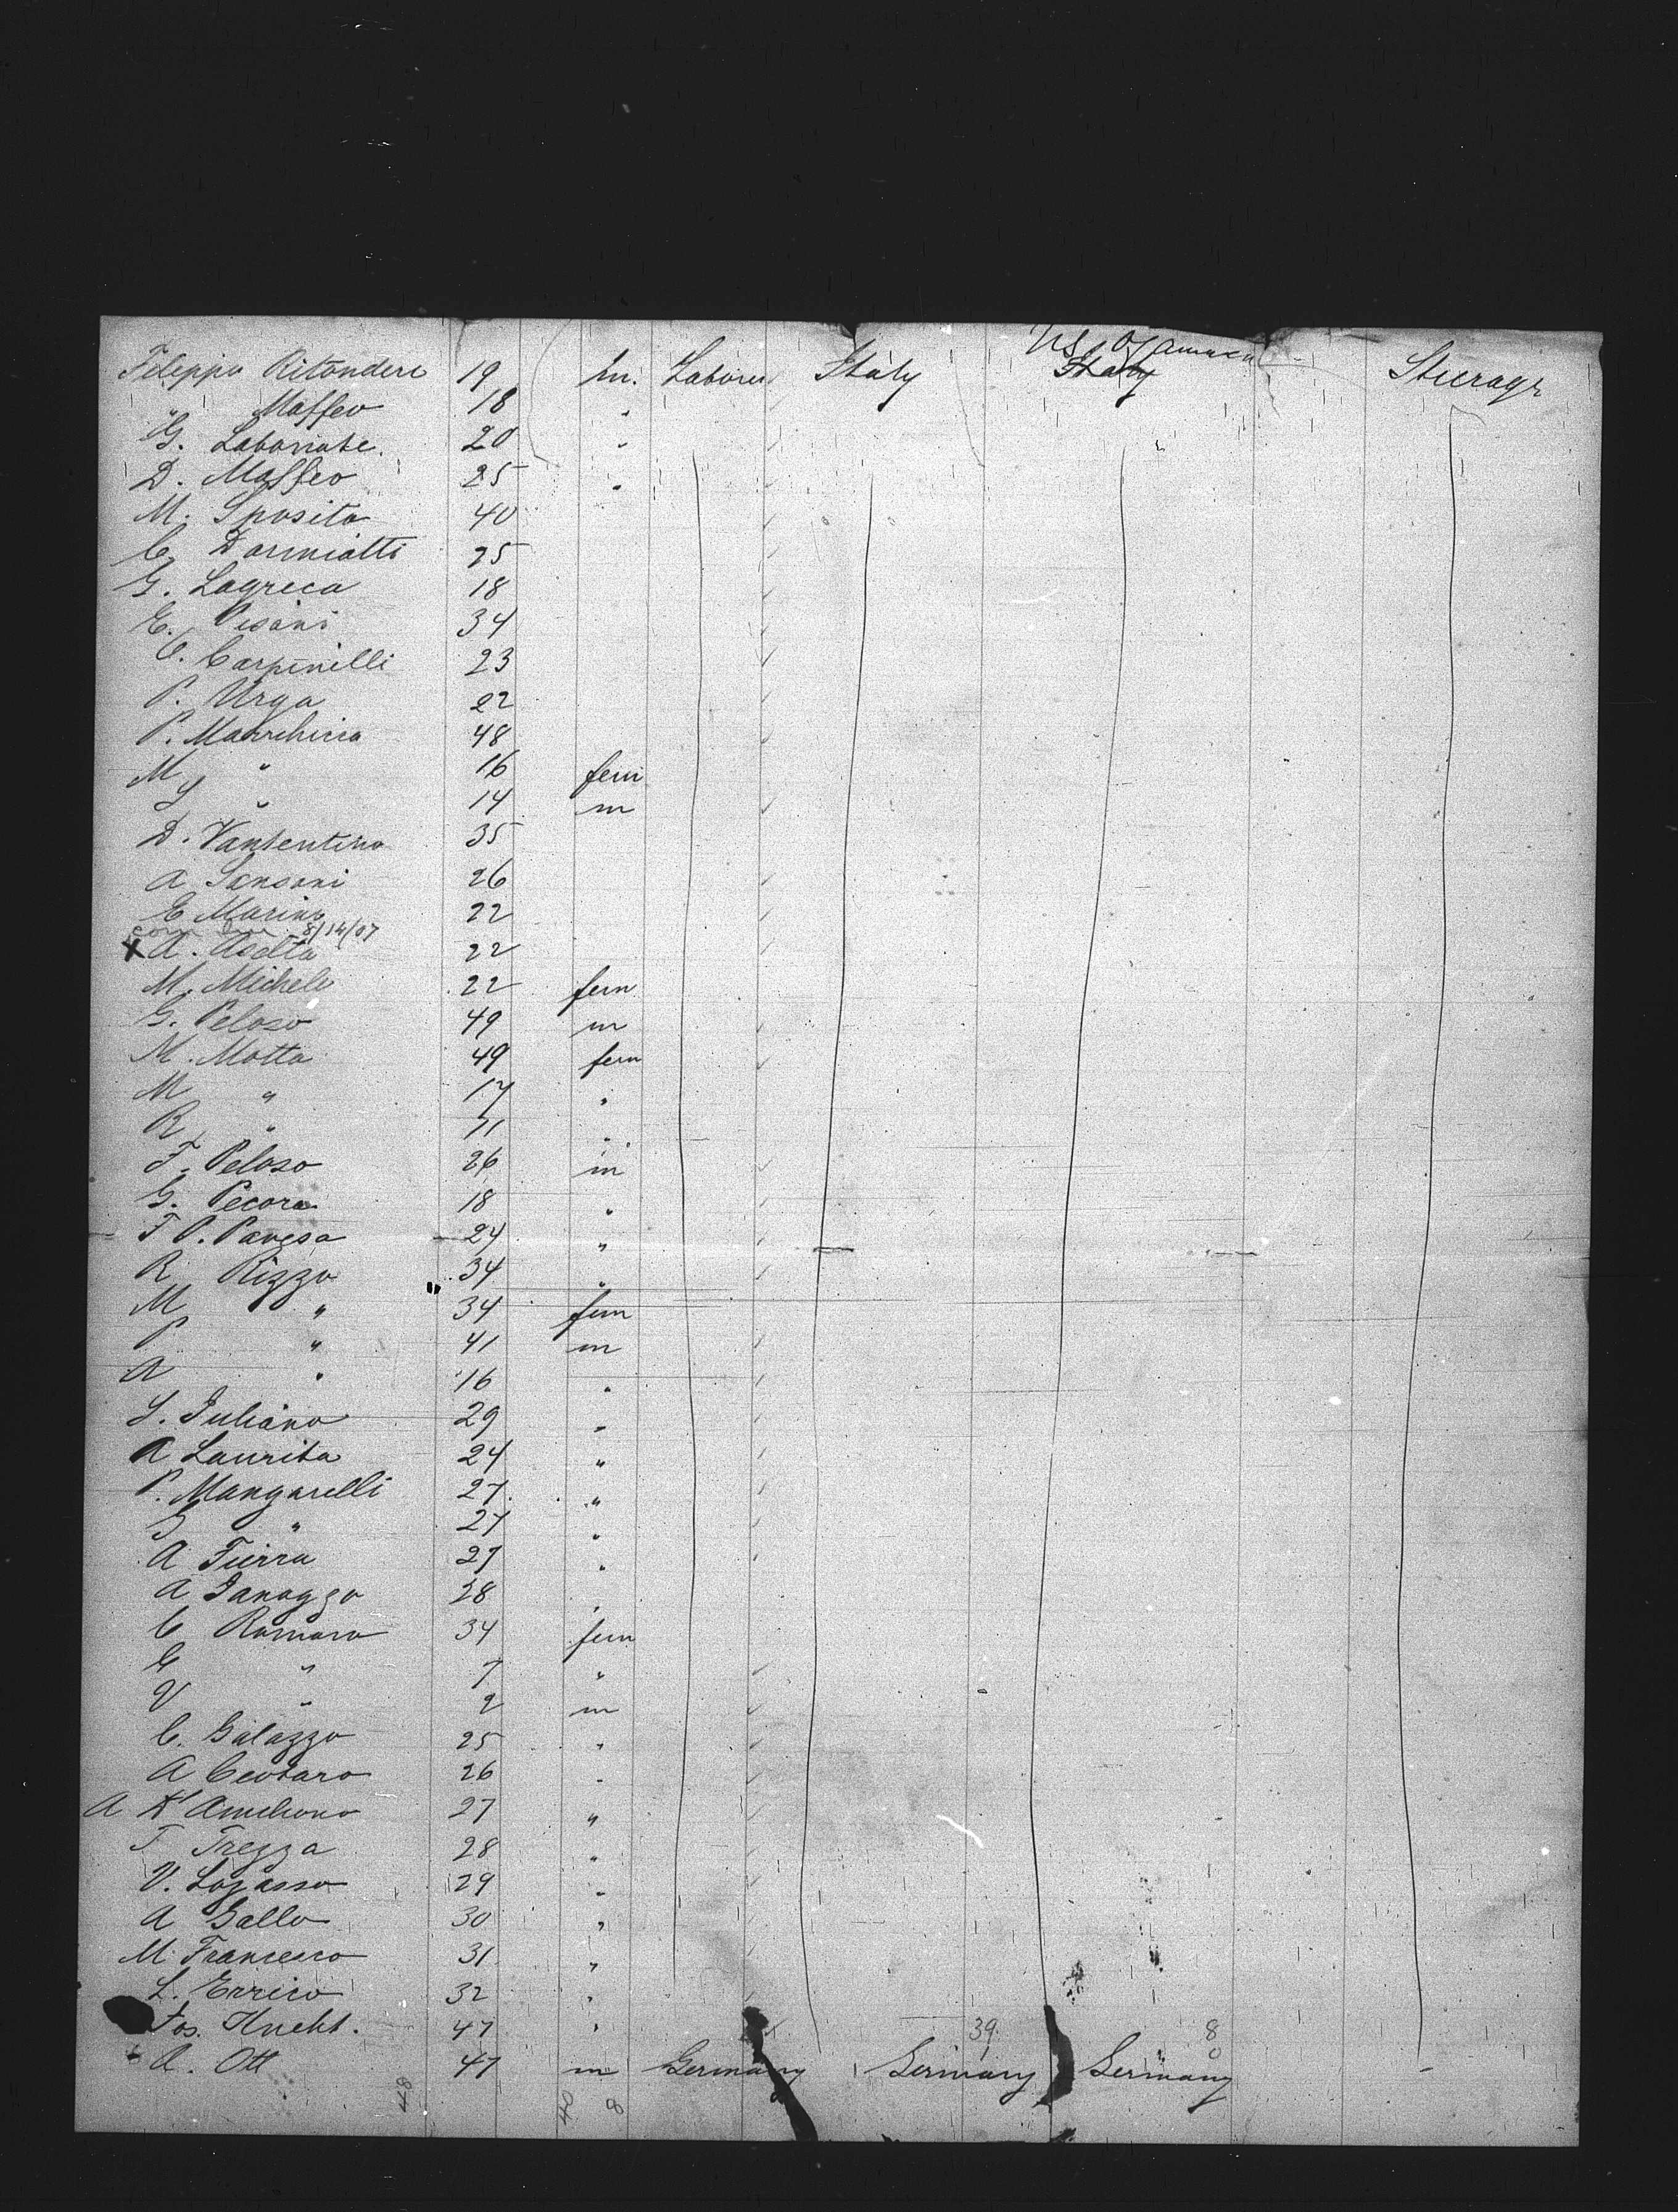 U.S. of America
Fileppo Ritondere 19 m. Laborer Italy Italy Steerage
" Maffeo 18 "
G. Laboriate. 20 "
D. Maffeo 25 "
M. Sposito 40
C. 25
G. Lagreca 18
E. Pisani 34
C. Carpinelli 23
P. Urga 22
P. 48
M " 16 fem
L " 14 m
D. 35
A Sansoni 26
E Marino 22
8/14/07
X A. Aselta 22
M. Michele 22 fem
G. Peloso 49 m
M. Motta 49 fem
M " 17 "
R " 11 "
F. Peloso 26 m
G. Pecora 18 "
F P. Pavesa 24 "
R Rizzo 34 "
M " 34 fem
P " 41 m
A " 16 "
S. Juliano 29 "
A Laurita 24 "
P. Mangarelli 27. "
G " 27 "
A Fierra 27 "
A 28 "
C Romano 34 fem
G " 7 "
V " 2 m
C. Galazzo 25 "
A 26 "
A D' 27 "
F Trezza 28 "
V. 29 "
A Gallo 30 "
M. Francesco 31 "
L. Errico 32 "
Jos. Knecht. 47 " 39 8
A. Ott 47 m Germany Germany Germany
878 40 8